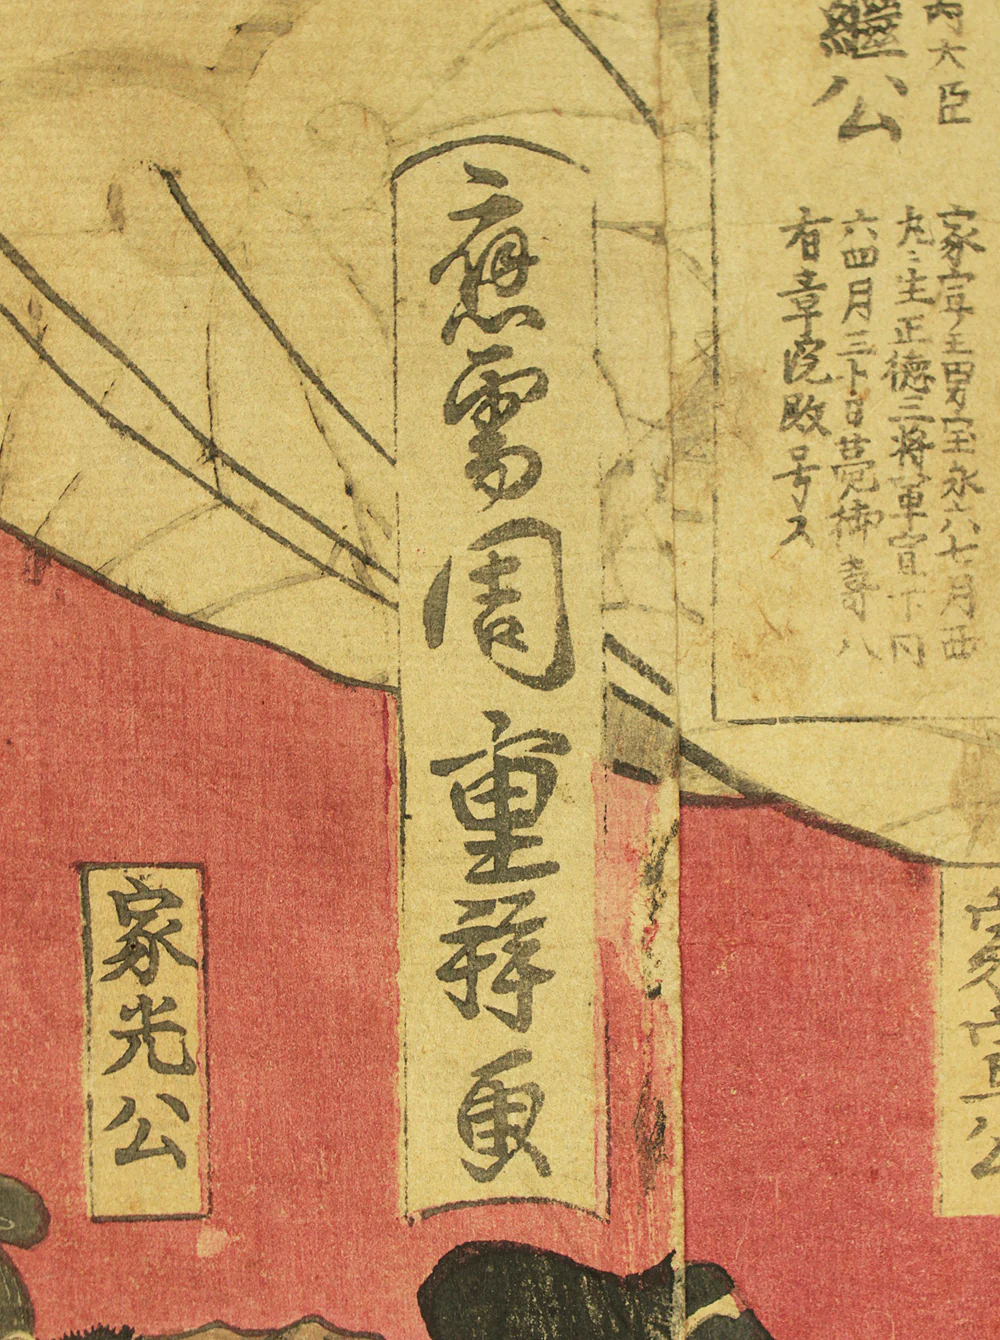 内大臣
繼公
家宣王男宝永六七月西
丸ニ生正徳三将軍宣下同
六四月三十日薨御寿八
有章院殿号ス
應需周重拜画
家光公
家宣公